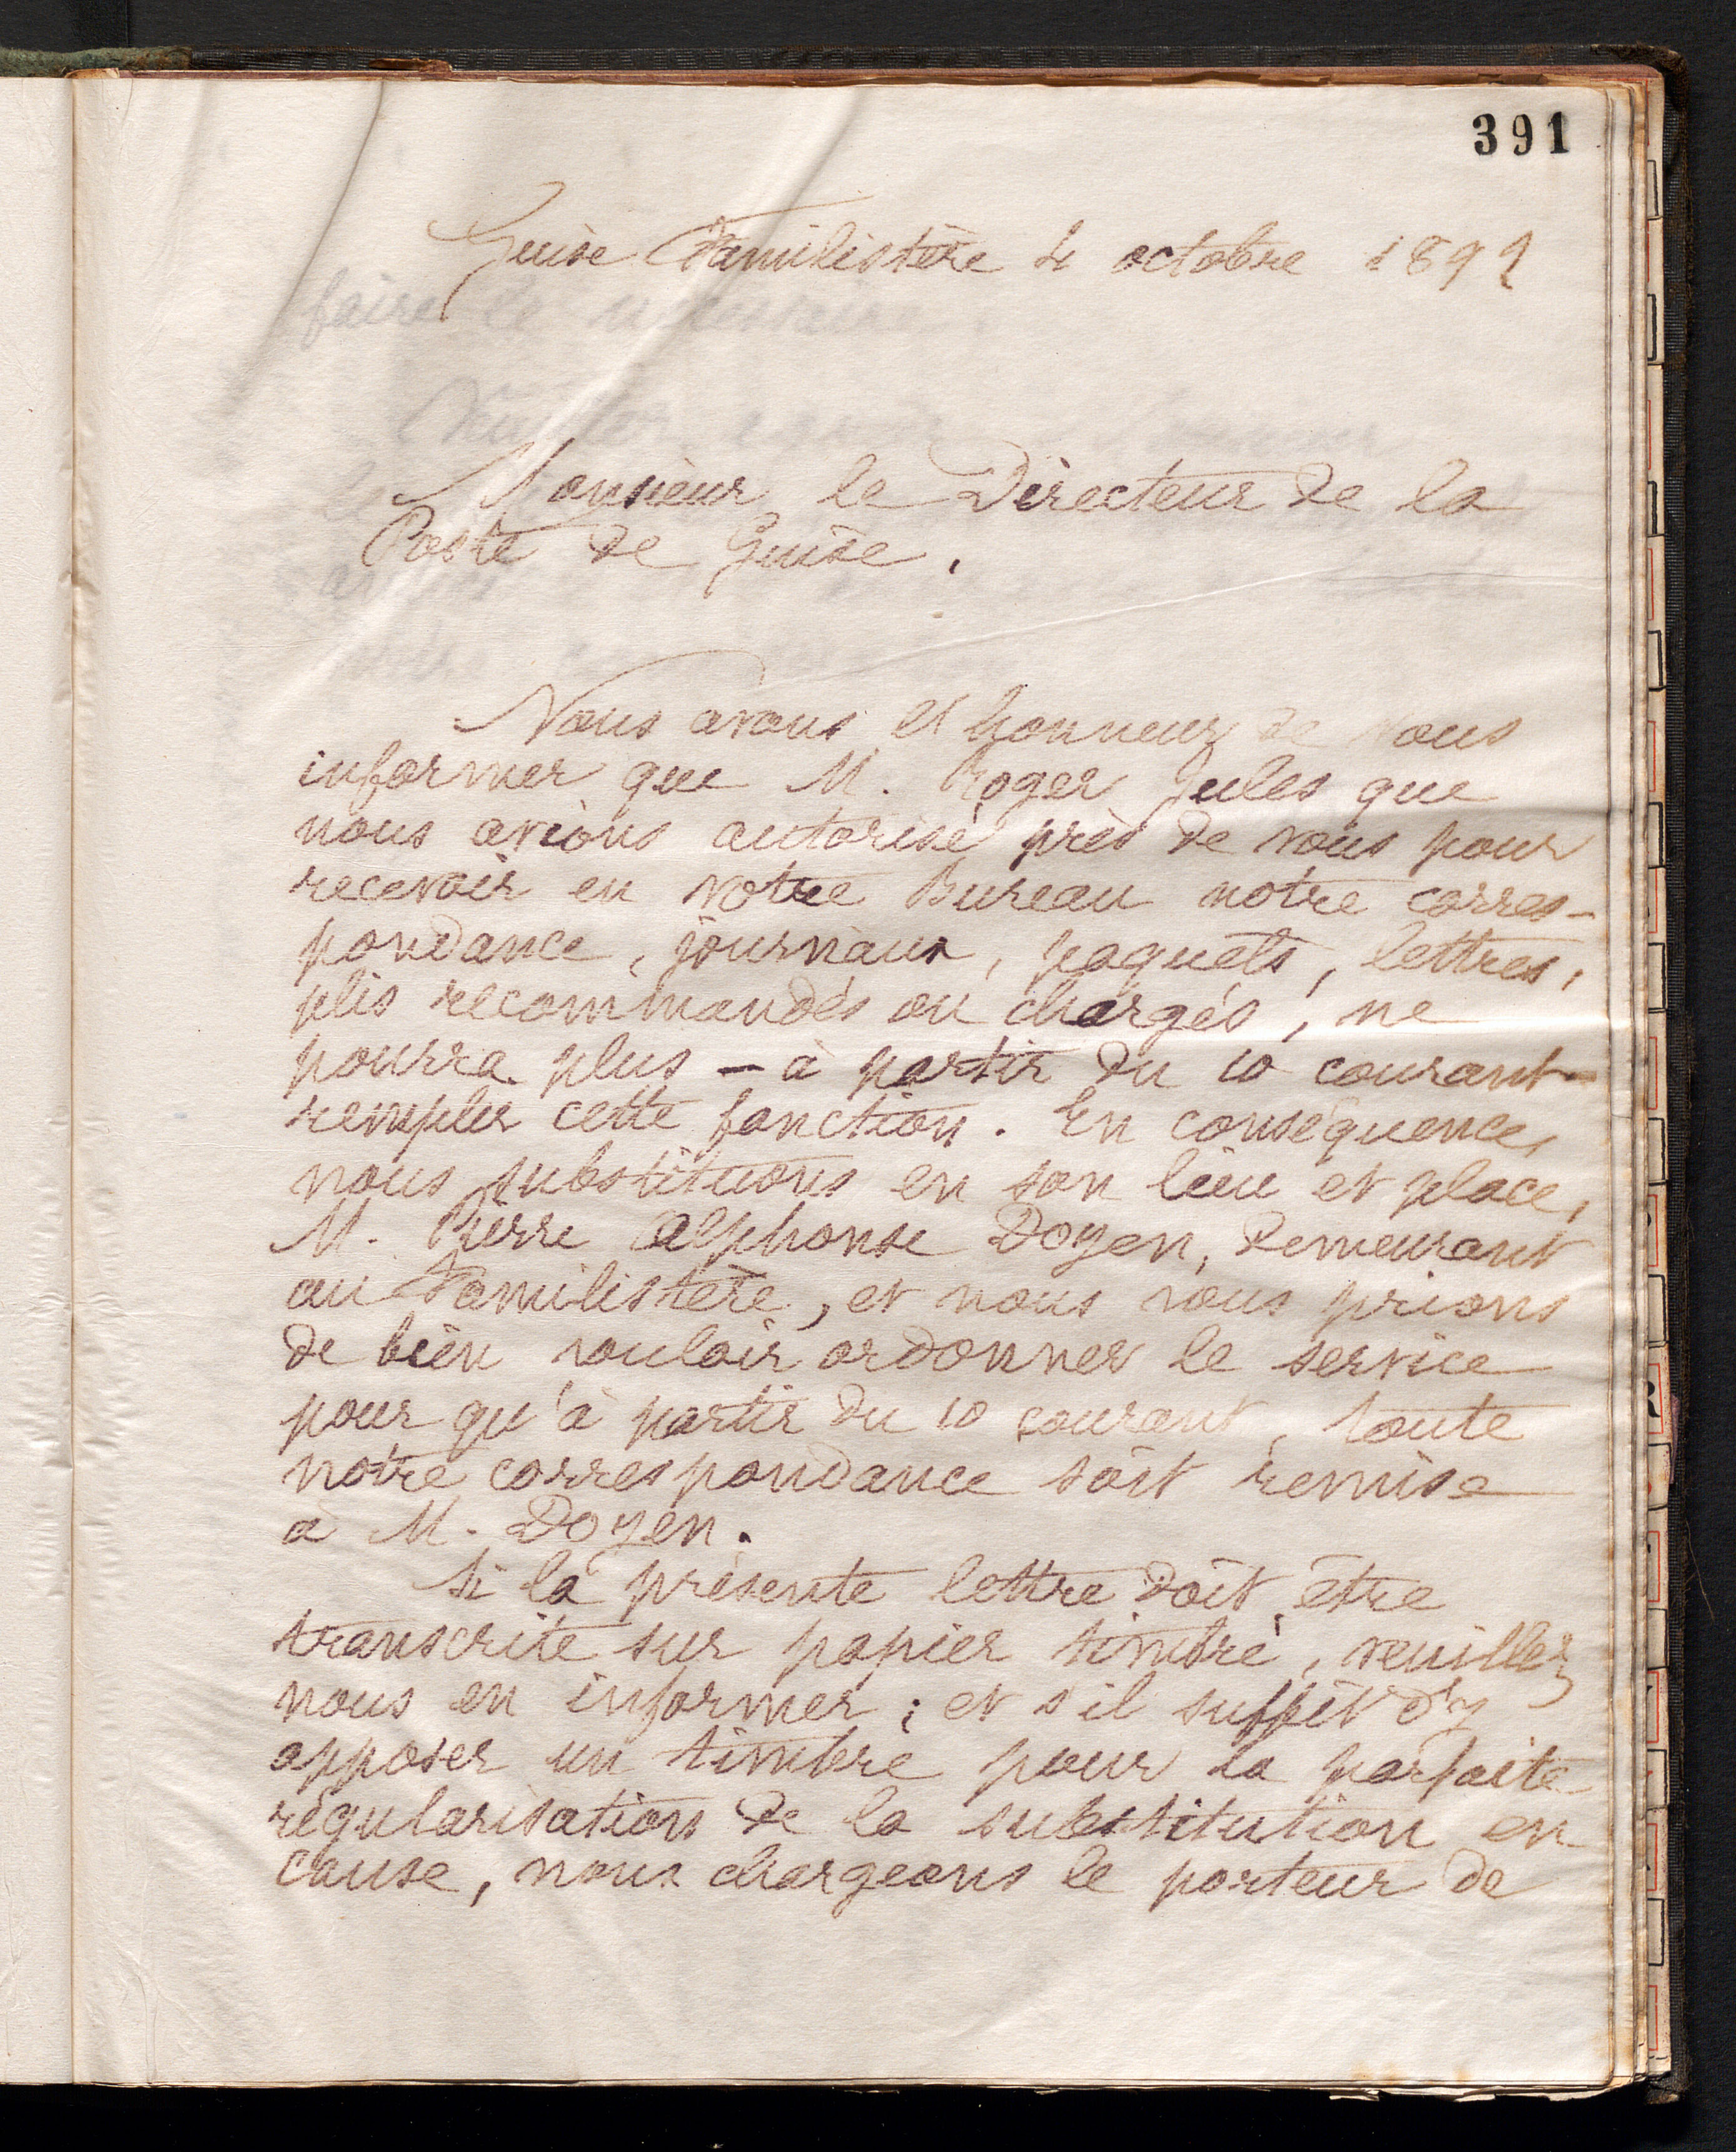 391
Guise Familistère 4 octobre 1891
Monsieur le Directeur de la
Poste de Guise.
Nous avons l'honneur de vous
informer que M. Roger Jules que
nous avions autorisé près de vous pour
recevoir en votre Bureau notre corres-
pondance, journaux, paquets, lettres,
plis recommandés ou chargés, ne
pourra plus – à partir du 10 courant –
remplir cette fonction. En conséquence,
nous substituons en son lieu et place,
M. Pierre Alphonse Doyen, demeurant
au Familistère, et nous vous prions
de bien vouloir ordonner le service
pour qu'à partir du 10 courant, toute
notre correspondance soit remise
à M. Doyen.
Si la présente lettre doit être
transcrite sur papier timbré, veuillez
nous en informer; et s'il suffit d'y
apposer un timbre pour la parfaite
régularisation de la substitution en
cause, nous chargeons le porteur de